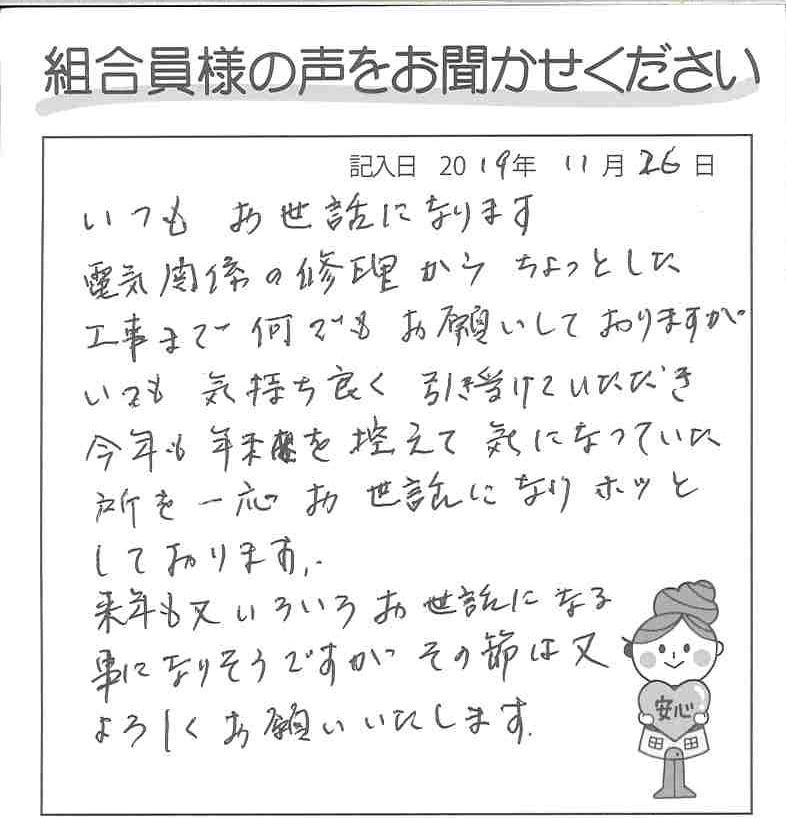 組合員様の声をお聞かせください
記入日 2019年 11月26日
いつも お世話になります
電気関係の修理から ちょっとした
工事まで 何でも お願いして おりますが
いつも 気持ち良く 引き受けていただき
今年も 年末を 控えて 気になっていた
所を 一応 お世話になり ホッと
しております。
来年も又 いろいろ お世話になる
事になりそうですが その節は又
よろしく お願いいたします。
安心